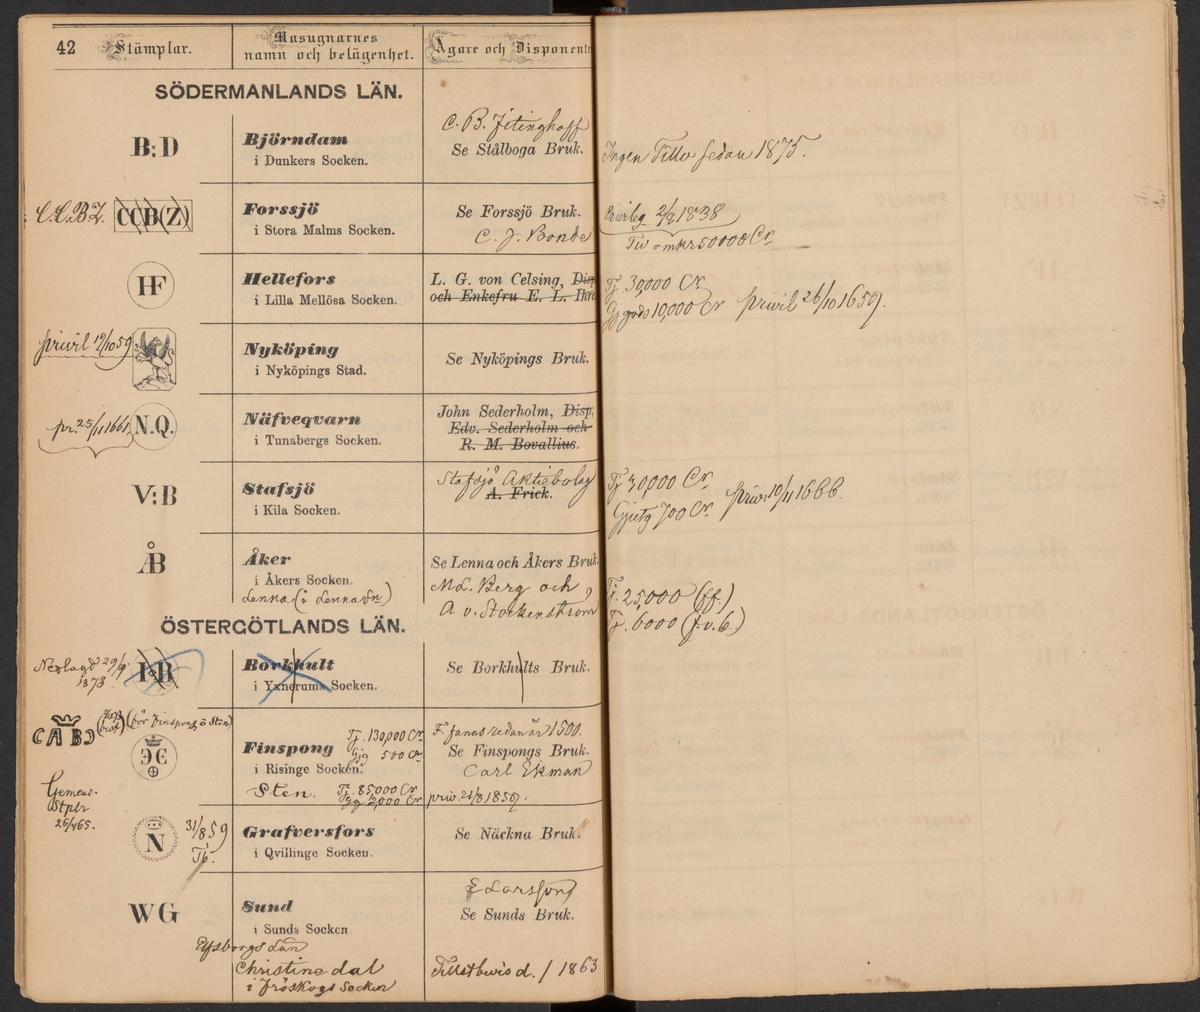 42
Stämplar.
Masugnarnes
namn och belägenhet.
Ägare och Disponente
SÖDERMANLANDS LÄN.
B:D
Björndam
i Dunkers Socken.
C. B. Fitinghoff
Se Stålboga Bruk.
Ingen Tillv sedan 1875.
C.C.B.Z.
CCB(Z)
Forssjö
i Stora Malms Socken.
Se Forssjö Bruk.
C. J. Bonde
Privileg 2/2 1838
Tiv omkr 50000 Cr
HF
Hellefors
i Lilla Mellösa Socken.
L. G. von Celsing, Disp
och Enkefru E. L. Ihre
Tj 30,000 Cr
Gj gods 10,000 Cr privil 26/10 1659.
privil 19/10 59
Nyköping
i Nyköpings Stad.
Se Nyköpings Bruk.
pr. 25/11 1661
N.Q.
Näfveqvarn
i Tunabergs Socken.
John Sederholm, Disp.
Edv. Sederholm och
R. M. Bovallius.
V:B
Stafsjö
i Kila Socken.
Stafsjö Aktiebolag
A. Frick.
Tj 30,000 Cr
Gjutg 700 Cr. priv. 10/11 1666.
ÅB
Åker
i Åkers Socken.
Lenna (i Lenna Sn)
Se Lenna och Åkers Bruk
Md. Berg och
A v. Stockenström
Tj. 25,000 (ff.)
Tj. 6000 (f.v.b.)
ÖSTERGÖTLANDS LÄN.
Nedlagd 29/9
1873.
Borkhult
i Yxnerums Socken.
Se Borkhults Bruk.
CABD
(för Finspong o Sten)
Finspong
i Risinge Socken.
Tj. 130,000 Cr
Gjg 500 Cr
Sten.
Tj. 85,000 Cr
Gjg 2,000 Cr
F. fanns redan år 1500.
Se Finspongs Bruk.
Carl Ekman
priv. 21/8 1859.
Gemens.
Stplr
26/4 65.
N
31/8 59
Tb.
Grafversfors
i Qvillinge Socken.
Se Näckna Bruk.
WG
Sund
i Sunds Socken
E Larsson
Se Sunds Bruk.
Elfsborgs Län
Christinedal
i Fröskogs Socken
Tillstbevis d. / 1863